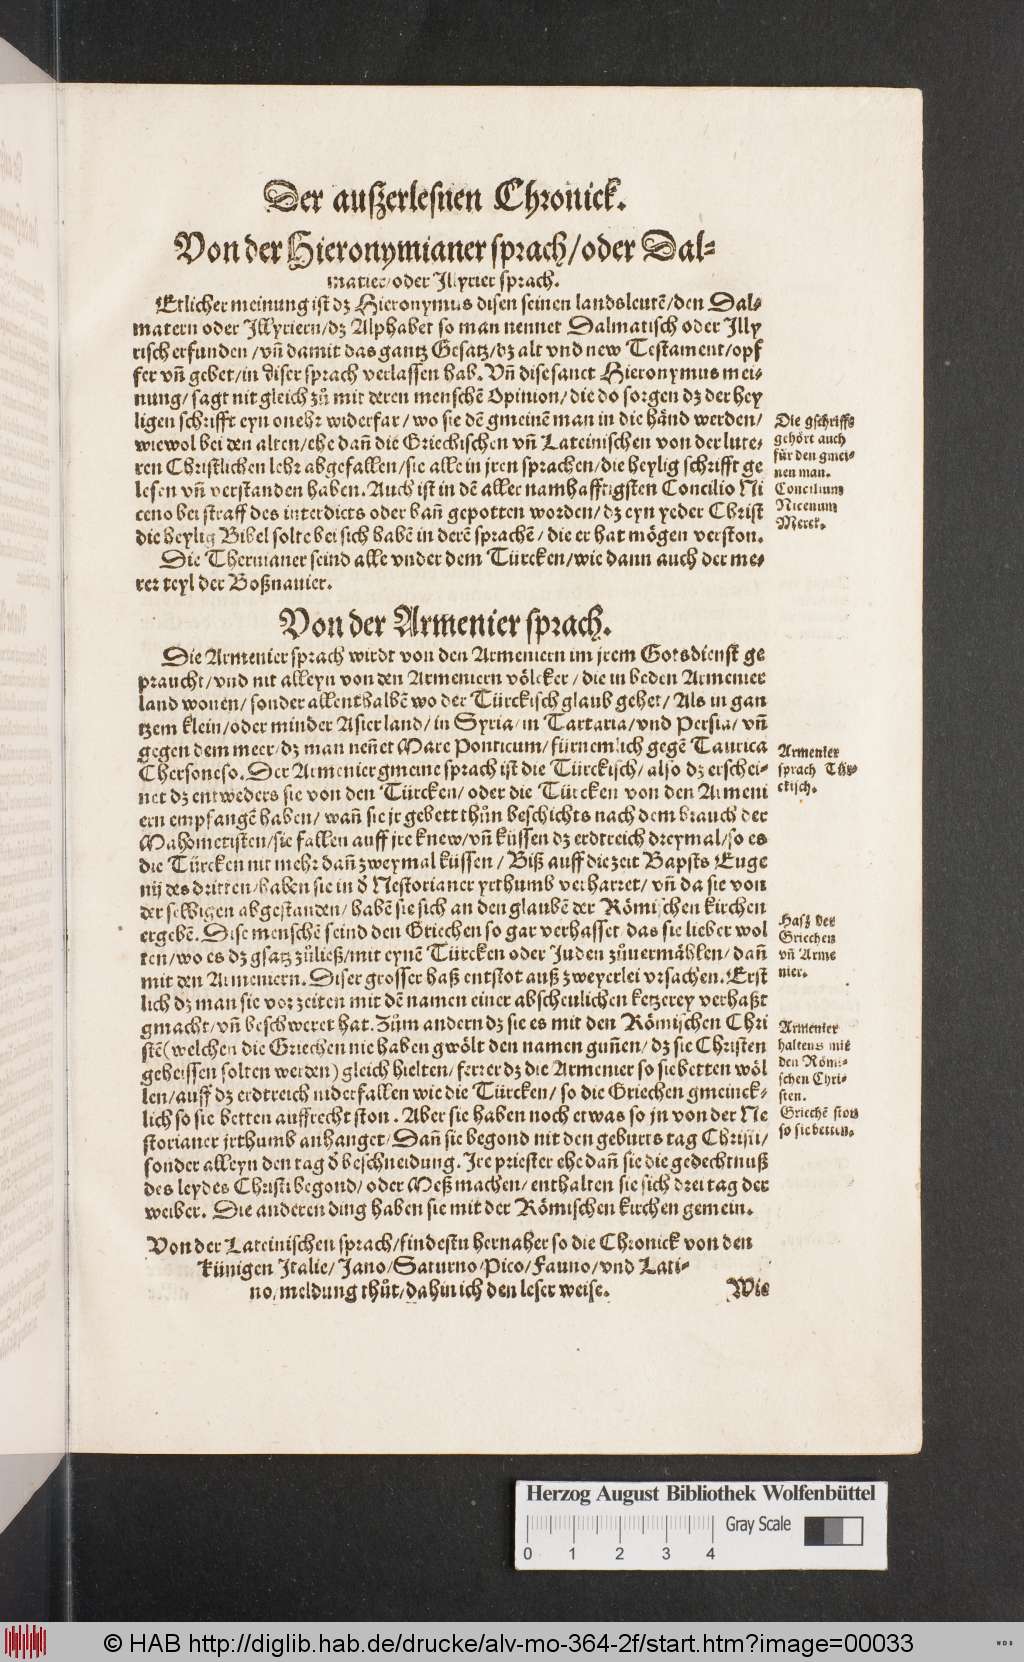 Der auſzerleſnen Chronick.
Von der Hieronymianer ſprach/oder Dal⸗
matier/oder Jllyrier ſprach.
Etlicher meinung iſt dz Hieronymus diſen ſeinen landsleutẽ/den Dal⸗
matern oder Jllyriern/dz Alphabet ſo man nennet Dalmatiſch oder Illy
riſch erfunden/vñ damit das gantz Geſatz/dz alt vnd new Teſtament/opf
fer vñ gebet/in diſer ſprach verlaſſen hab. Vñ diſe sanct Hieronymus mei⸗
nung/ſagt nit gleich zů mit deren menſchẽ Opinion/die do ſorgen dz der hey
ligen ſchrifft eyn onehr widerfar/wo ſie dẽ gmeinẽ man in die händ werden/
wiewol bei den alten/ehe dañ die Griechiſchen vñ Lateiniſchen von der lute⸗
ren Chriſtlichen lehr abgefallen/ſie alle in jren ſprachen/die heylig ſchrifft ge
leſen vñ verſtanden haben. Auch iſt in dẽ aller namhafftigſten Concilio Ni
ceno bei ſtraff des interdicts oder bañ gepotten worden/dz eyn yeder Chriſt
die heylig Bibel ſolte bei ſich habẽ in derẽ ſprachẽ/die er hat mögen verſton.
Die Thermaner ſeind alle vnder dem Türcken/wie dann auch der me⸗
rer teyl der Boßnauier.
Die gſchrifft
gehört auch
für den gmei⸗
nen man.
Concilium
Nicenum
Merck.
Von der Armenier ſprach.
Die Armenier ſprach wirdt von den Armeniern im jrem Gotsdienſt ge
praucht/vnd nit alleyn von den Armeniern völcker/die in beden Armenier
land wonen/ſonder allenthalbẽ wo der Türckiſch glaub gehet/Als in gan
tzem klein/oder minder Aſier land/in Syria/in Tartaria/vnd Perſia/vñ
gegen dem meer/dz man neñet Mare Ponticum/fürnemlich gegẽ Taurica
Cherſoneſo. Der Armenier gmeine ſprach iſt die Türckiſch/alſo dz erſchei⸗
net dz entweders ſie von den Türcken/oder die Türcken von den Armeni
ern empfangẽ haben/wañ ſie jr gebett thůn beſchichts nach dem brauch der
Mahometiſten/ſie fallen auff jre knew/vñ küſſen dz erdtreich dreymal/ſo es
die Türcken nit mehr dañ zweymal küſſen/Biß auff die zeit Bapſts Euge
nij des dritten/haben ſie in ð Neſtorianer yrthumb verharret/vñ da ſie von
der ſelbigen abgeſtanden/habẽ ſie ſich an den glaubẽ der Römiſchen kirchen
ergebẽ. Diſe menſchẽ ſeind den Griechen ſo gar verhaſſet/das ſie lieber wol
ten/wo es dz gſatz zůließ/mit eynẽ Türcken oder Juden zůvermählen/dañ
mit den Armeniern. Diſer groſſer haß entſtot auß zweyerlei vrſachen. Erſt
lich dz man ſie vor zeiten mit dẽ namen einer abſcheulichen ketzerey verhaßt
gmacht/vñ beſchweret hat. Zům andern dz ſie es mit den Römiſchen Chri
ſtẽ (welchen die Griechen nie haben gwölt den namen guñen/dz ſie Chriſten
geheiſſen ſolten werden) gleich hielten/ferrer dz die Armenier ſo ſie betten wöl
len/auff dz erdtreich niderfallen wie die Türcken/ſo die Griechen gmeinck⸗
lich ſo ſie betten auffrecht ſton. Aber ſie haben noch etwas ſo jn von der Ne
ſtorianer jrthumb anhanget/Dañ ſie begond nit den geburts tag Chriſti/
ſonder alleyn den tag ð beſchneidung. Jre prieſter ehe dañ ſie die gedechtnuß
des leydes Chriſti begond/oder Meß machen/enthalten ſie ſich drei tag der
weiber. Die anderen ding haben ſie mit der Römiſchen kirchen gemein.
Armenier
ſprach Tür⸗
ckiſch.
Haſz der
Griechen
vñ Arme
nier.
Armenier
haltens mit
den Römi⸗
ſchen Chri⸗
ſten.
Griechẽ ſton
ſo ſie betten.
Von der Lateiniſchen ſprach/findeſtu hernaher ſo die Chronick von den
künigen Italie/Jano/Saturno/Pico/Fauno/vnd Lati⸗
no/meldung thůt/dahin ich den leſer weiſe.
Wie
Herzog August Bibliothek Wolfenbüttel
Gray Scale
0 1 2 3 4
© HAB http://diglib.hab.de/drucke/alv-mo-364-2f/start.htm?image=00033